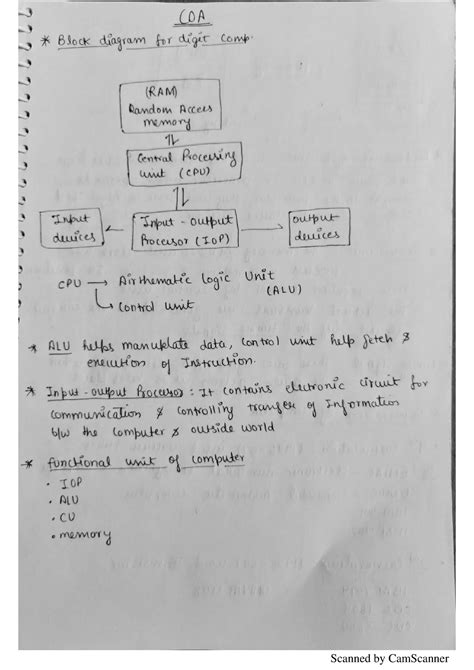 COA
* Block diagram for digit comp.
(RAM)
Random Access
memory
Central Processing
unit (CPU)
Input
devices
Input - output
Processor (IOP)
output
devices
CPU → Airthematic Logic Unit
(ALU)
↳ Control unit
* ALU helps manuplate data, control unit help fetch &
execution of Instruction.
* Input-output Processor : It contains electronic circuit for
communication & controlling transfer of Information
b/w the computer & outside world
* functional unit of computer
• IOP
• ALU
• CU
• memory
Scanned by CamScanner